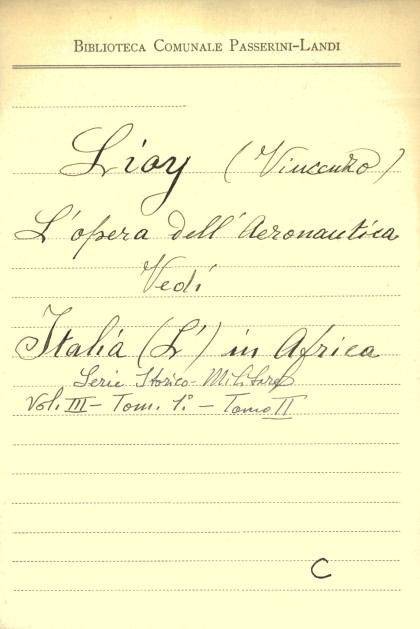 BIBLIOTECA COMUNALE PASSERINI-LANDI
Lioy (Vincenzo)
L'opera dell'Aeronautica
Vedi
Italia (L') in Africa
Serie Storico-Militare
Vol. III - Tom. 1º - Tomo II
C